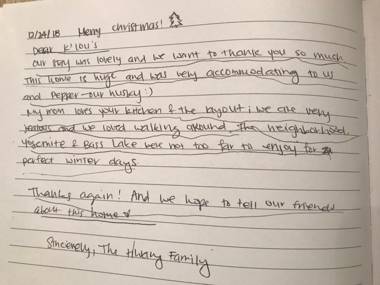 12/24/18 Merry Christmas!
Dear K'Lou's
Our stay was lovely and we want to thank you so much.
This home is huge and was very accommodating to us
and Pepper - our husky :)
My mom loves your kitchen & the layout; we are very
jealous and we loved walking around the neighborhood.
Yosemite & Bass Lake were not too far to enjoy for
perfect winter days.
Thanks again! And we hope to tell our friends
about this home
Sincerely, The Hwang Family